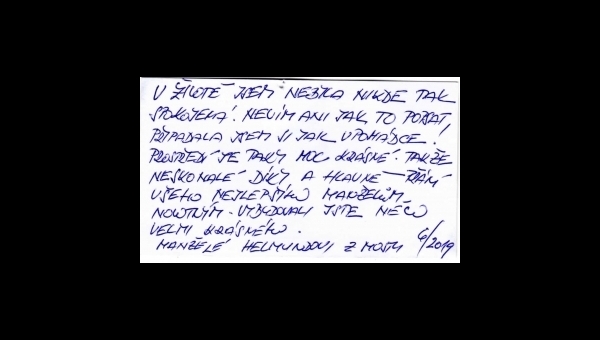 V ŽIVOTĚ JSEM NEBYLA NIKDE TAK
SPOKOJENÁ! NEVÍM ANI JAK TO POPSAT,
PŘIPADALA JSEM SI JAK V POHÁDCE!
PROSTŘEDÍ JE TAKY MOC KRÁSNÉ. TAKŽE
NESKONALÉ DÍKY A HLAVNĚ PŘÁNÍ
VŠEHO NEJLEPŠÍHO MANŽELŮM
NOVOTNÝM. VYBUDOVALI JSTE NĚCO
VELMI KRÁSNÉHO.
MANŽELÉ HELMUNDOVI Z MOSTU 6/2019